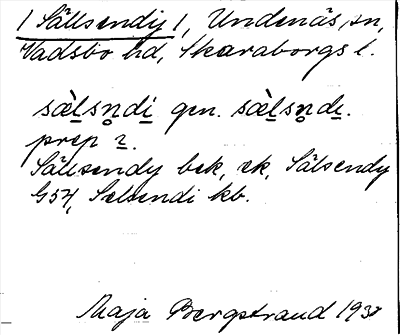 / Sällsendy /, Undenäs sn,
Vadsbo hd, Skaraborgs l.
sæ̀l̠sn̥di̠ gen. sæ̀l̠sn̥di̠.
prep 2.
Sällsendy bek, ek, Sälsendy
G54, Selsendi kb.
Maja Bergstrand 193